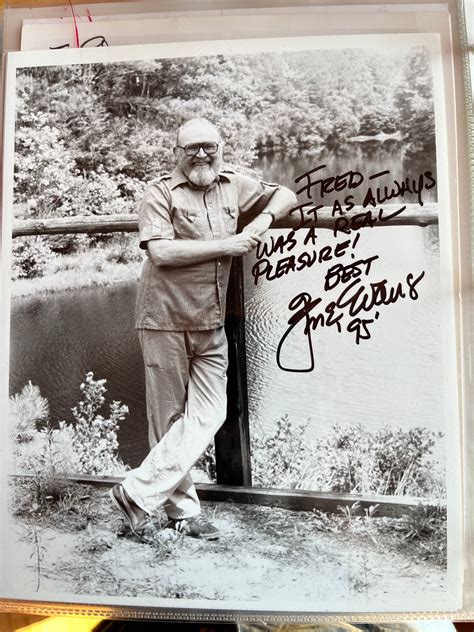 FRED —
IT AS ALWAYS
WAS A REAL
PLEASURE!
BEST
Gene Evans
95'